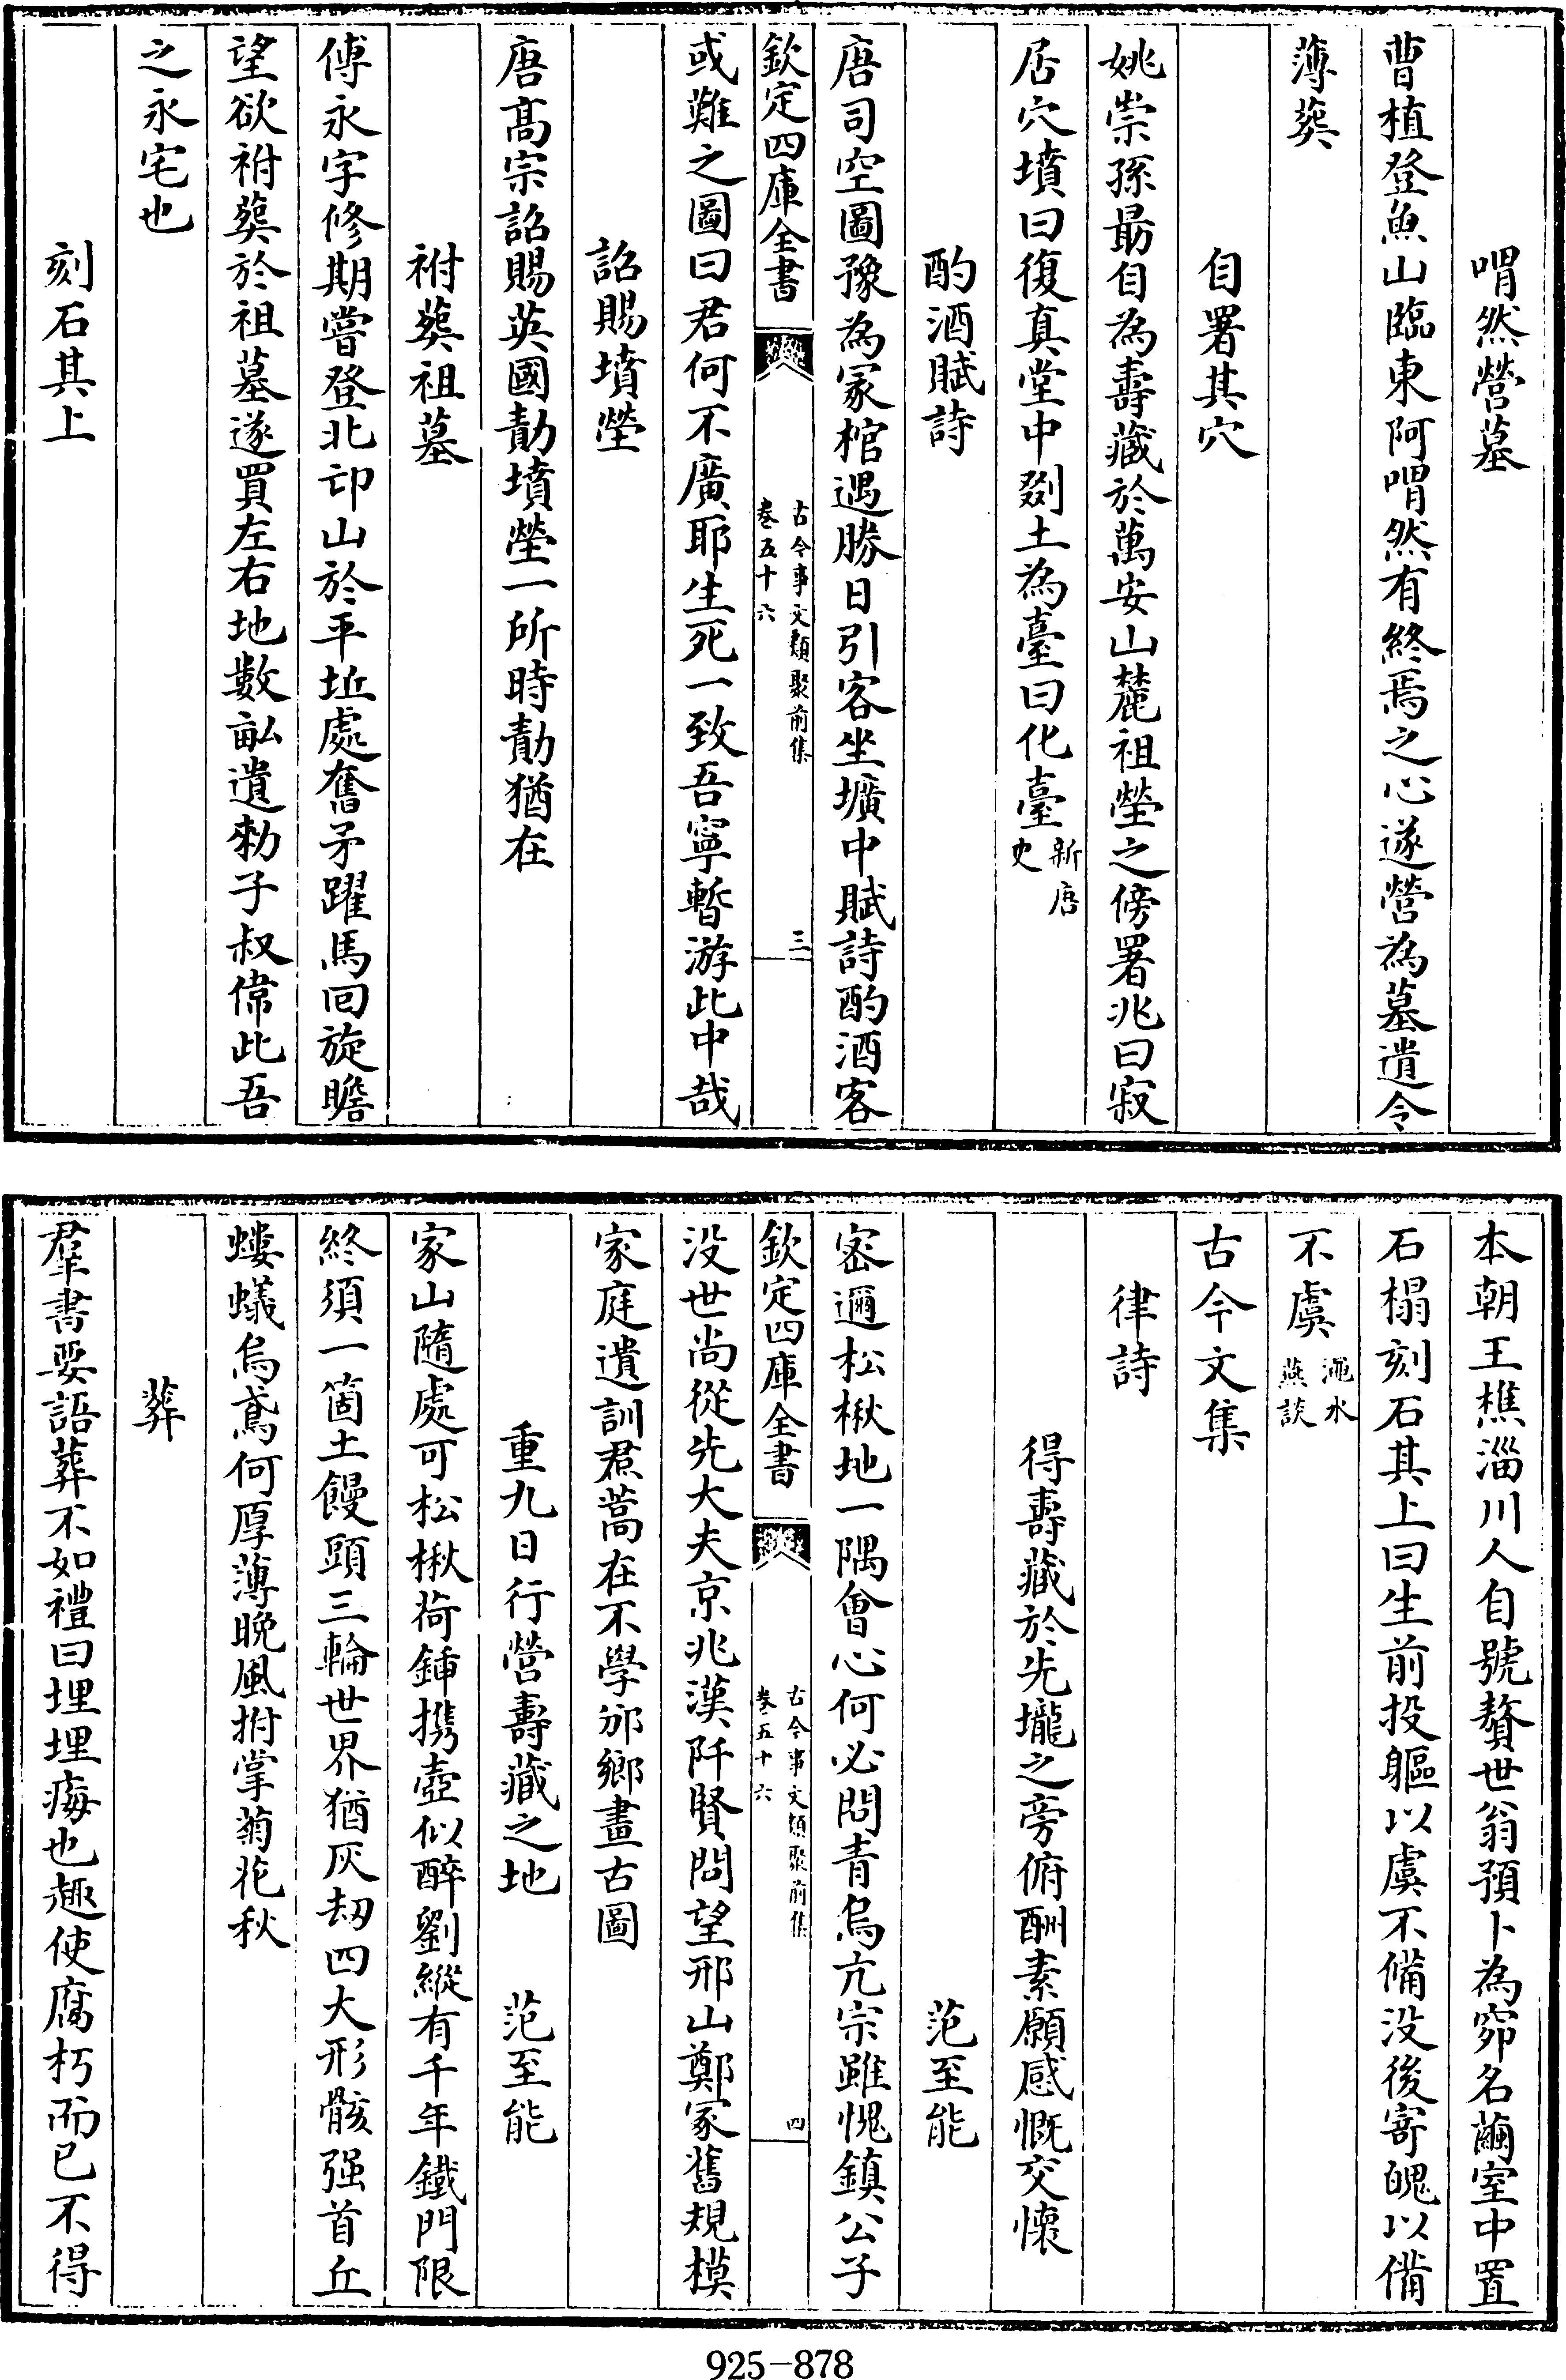 喟然營墓
曹植登魚山臨東阿喟然有終焉之心遂營為墓遺令
薄葬
自署其穴
姚崇孫勗自為壽藏於萬安山麓祖塋之傍署兆曰寂
居穴墳曰復真堂中剟土為臺曰化臺新唐
史
酌酒賦詩
唐司空圖豫為冢棺遇勝日引客坐壙中賦詩酌酒客
欽定四庫全書
古今事文類聚前集
卷五十六
三
或難之圖曰君何不廣耶生死一致吾寧暫游此中哉
詔賜墳塋
唐髙宗詔賜英國勣墳塋一所時勣猶在
祔葬祖墓
傅永字修期嘗登北邙山於平坵處奮矛躍馬回旋瞻
望欲祔葬於祖墓遂買左右地數畝遺勑子叔偉此吾
之永宅也
刻石其上
本朝王樵淄川人自號贅世翁預卜為窌名繭室中置
石榻刻石其上曰生前投軀以虞不備没後寄魄以備
不虞澠水
燕談
古今文集
律詩
得壽藏於先壠之旁俯酬素願感慨交懷
范至能
密邇松楸地一隅會心何必問青烏亢宗雖愧鎮公子
欽定四庫全書
古今事文類聚前集
卷五十六
四
没世尚從先大夫京兆漢阡賢問望邢山鄭冢舊規模
家庭遺訓焄蒿在不學邠鄉畫古圖
重九日行營壽藏之地 范至能
家山隨處可松楸荷鍤攜壺似醉劉縱有千年鐵門限
終須一箇土饅頭三輪世界猶灰刼四大形骸强首丘
螻蟻烏鳶何厚薄晚風拊掌菊花秋
葬
羣書要語葬不如禮曰埋埋痗也趣使腐朽而已不得
925-878